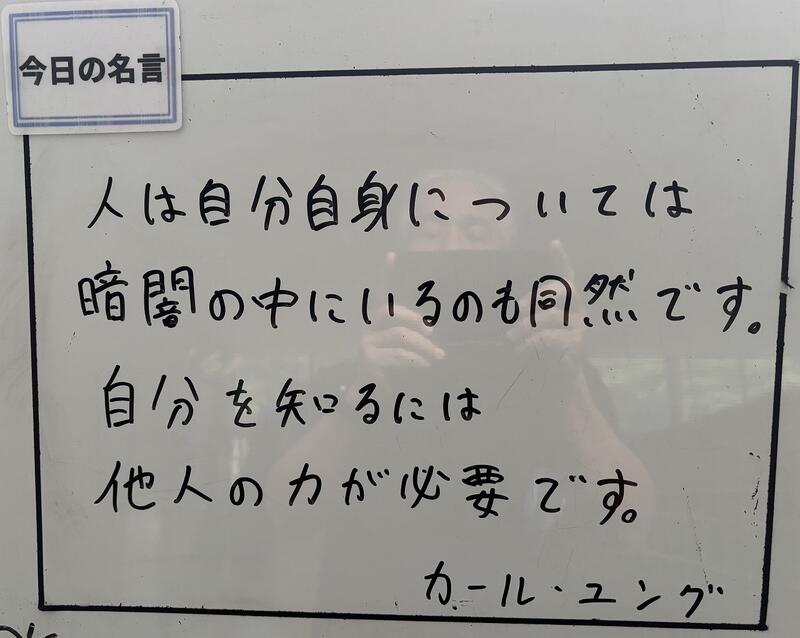 今日の名言
人は自分自身については
暗闇の中にいるのも同然です。
自分を知るには
他人の力が必要です。
カール・ユング